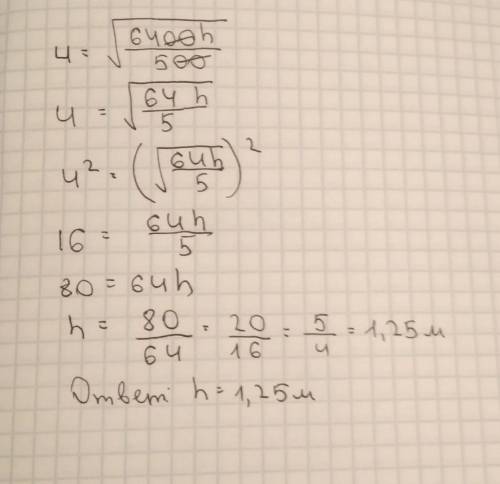 4 = √(6400h / 500)
4 = √(64h / 5)
4² = (√(64h / 5))²
16 = 64h / 5
80 = 64h
h = 80/64 = 20/16 = 5/4 = 1,25м
Ответ: h = 1,25м